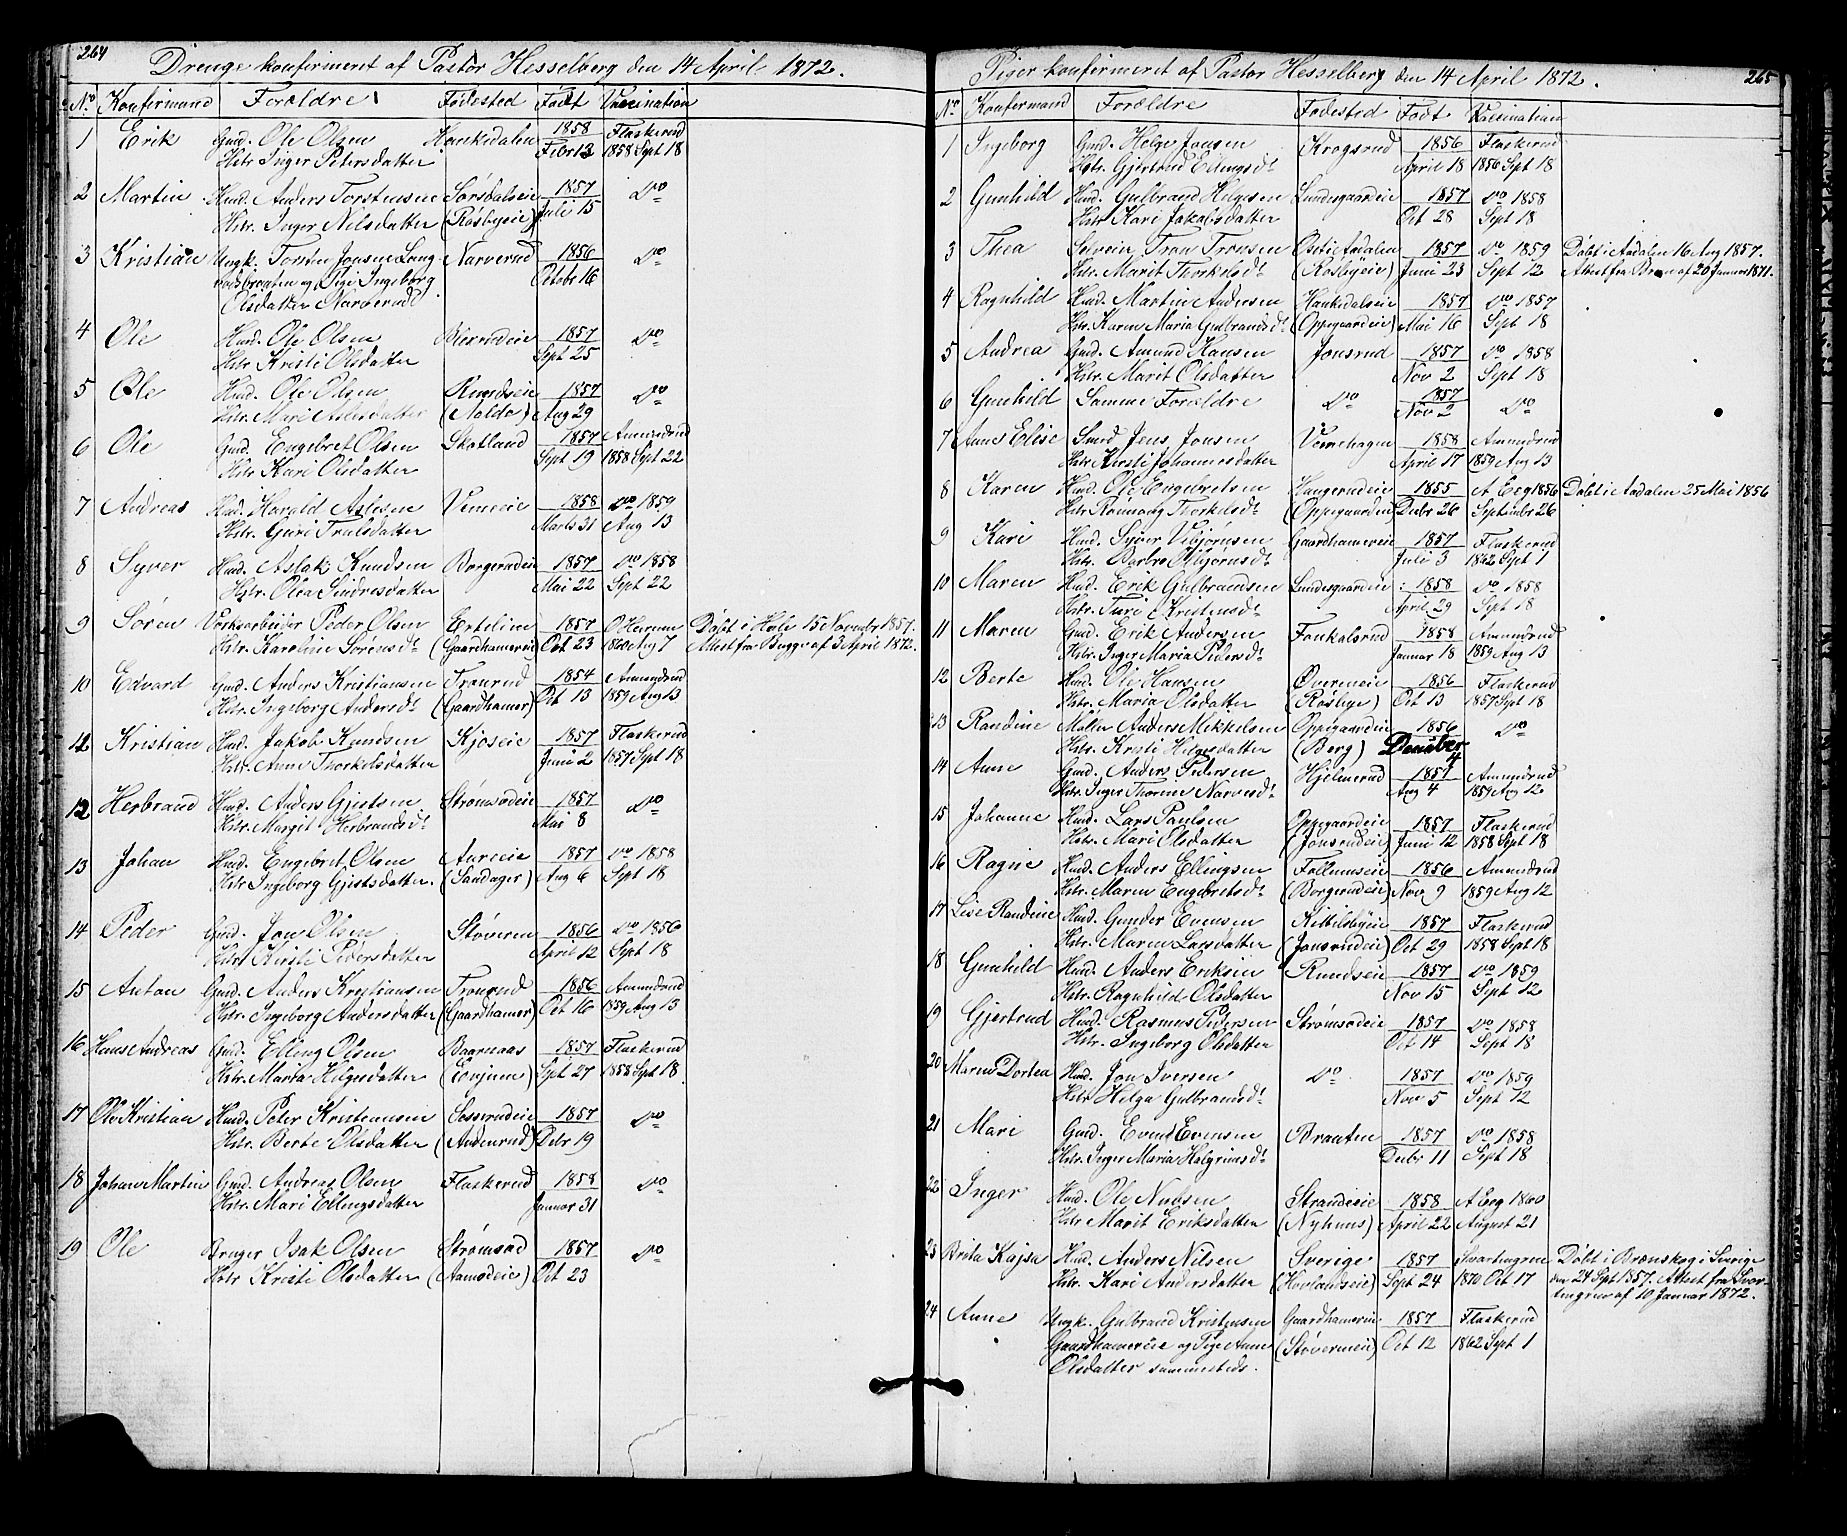 264
Drenge konfirmeret af Pastor Hesselberg den 14 April 1872.
No Konfirmand Forældre Fødested Født Vaccination
1 Erik Gmd. Ole Olsen Hankedalen 1858 Flaskerud
Hstr. Inger Petersdatter Febr 13 1858 Sept 18
2 Martin Hmd. Anders Torstensen Sørsdalseie 1857 Do
Hstr. Inger Nilsdatter (Røsbyeie) Juli 15
3 Kristian Ungk. Torsten Jonsen Lang- Narverud 1856 Do
og Pige Ingeborg Octobr 16
Olsdatter Narverud
4 Ole Hmd. Ole Olsen Blexrudeie 1857 Do
Hstr. Kristi Olsdatter Sept 25
5 Ole Hmd. Ole Olsen Rundseie 1857 Do
Hstr. Mari Aslesdatter Aug 29
6 Ole Gmd. Engebret Olsen Skotland 1857 Ammundrud
Hstr. Kari Olsdatter Sept 19 1858 Sept 22
7 Andreas Hmd. Harald Aslesen Vemeeie 1858 Do 1859
Hstr. Guri Trulsdatter Marts 31 Aug 13
8 Syver Hmd. Aslak Knudsen Borgerudeie 1857 Do 1858
Hstr. Olea Sindresdatter Mai 22 Sept 22
9 Søren Værksarbeider Peder Olsen 1857 Døbt i Hole 15 Novembr 1857.
Hstr. Karoline Sørensdr (Gaardhamereie) Oct 23 1860 Aug 7 Attest fra Bugge af 3 April 1872.
10 Edvard Gmd. Anders Kristiansen Tronrud 1854 Ammundrud
Hstr. Ingeborg Andersdr (Gaardhamer) Oct 13 1859 Aug 13
11 Kristian Hmd. Jakob Knudsen Kjoseie 1857 Flaskerud
Hstr. Anne Thorkelsdatter Juni 2 1857 Sept 18
12 Herbrand Hmd. Anders Gjertsen Strømsødeie 1857 Do
Hstr. Margit Herbrandsdr Mai 8
13 Johan Hmd. Engebret Olsen Aureeie 1857 Do 1858
Hstr Ingeborg Gjertsdatter. (Sandager) Aug 6 Sept 18
14 Peder Gmd. Jon Olsen Støveren 1856 Do 1856
Hstr Kirsti Pedersdatter April 12 Sept 18
15 Anton Gmd. Anders Kristiansen Tronrud 1856 Ammundrud
Hstr. Ingeborg Andersdatter (Gaardhamer) Oct 16 1859 Aug 13
16 Hans Andreas Gmd. Elling Olsen Baarnaas 1857 Flaskerud
Hstr. Maria Helgesdatter Sept 27 1858 Sept 18
17 Ole Kristian Hmd. Peter Kristensen Sosserudeie 1857 Do
Hstr. Berte Olsdatter (Andersrud) Debr 19
18 Johan Martin Gmd. Andreas Olsen Flaskerud 1858 Do
Hstr. Mari Ellingsdatter Januar 31
19 Ole Bruger Isak Olsen Strømsød 1857 Do
Hstr Kristi Olsdatter (Aamodeie) Oct 23
265
Piger konfirmeret af Pastor Hesselberg den 14 April 1872.
No Konfirmand Forældre Fødested Født Vaccination
1 Ingeborg Gmd. Helge Jonsen Krogsrud 1856 Flaskerud
Hstr. Gjertrud Ellingsdr April 18 1856 Sept 18
2 Gunhild Hmd. Gulbrand Helgesen Lundesgaardeie 1857 Do 1858
Hstr. Kari Jakobsdatter Oct 28 Sept 18
3 Thea Selveier Tron Tronsen Øst i Aadalen 1857 Do 1859 Døbt i Aadalen 16 Aug 1857.
Hstr. Marit Thorkelsdr (Røsbyeie) Juni 23 Sept 12 Attest fra Bran af 20 Januar 1871.
4 Ragnhild Hmd. Martin Andersen Hankedalseie 1857 Do 1857
Hstr. Karen Maria Gulbrandsdr (Oppegaardeie) Mai 16 Sept 18
5 Andrea Gmd. Amund Hansen Jonsrud 1857 Do 1858
Hstr. Marit Olsdatter Nov 2 Sept 18
6 Gunhild Samme Forældre Do 1857 Do
Nov 2
7 Anne Elise Smed Jens Jonsen Vemehagen 1858 Ammundrud
Hstr. Kirsti Johannesdatter April 17 1859 Aug 13
8 Karen Hmd. Ole Engebretsen Haugerudeie 1855 A Berg 1856 Døbt i Aadalen 25 Mai 1856
Hstr. Rønnaug Thorkelsdr (Oppegaarden) Debr 26 September 26
9 Kari Hmd. Syver Vebjørnsen Gaardhamereie 1857 Flaskerud
Hstr. Barbro Juli 3 1862 Sept 1
10 Maren Hmd. Erik Gulbrandsen Lundesgaardeie 1858 Do 1858
Hstr. Turi Kristensdr April 29 Sept 18
11 Maren Gmd. Erik Andersen Fonkalsrud 1858 Ammundrud
Hstr. Inger Maria Pedersdr Januar 18 1859 Aug 13
12 Berte Hmd. Ole Hansen Øvermeie 1856 Flaskerud
Hstr. Maria Olsdatter (Røsbye) Oct 13 1857 Sept 18
13 Randine Møller Anders Mikkelsen Oppegaardeie 1856 Do
Hstr. Kristi Helgesdatter (Berg) December 4
14 Anne Gmd. Anders Pedersen Hjelmerud 1857 Ammundrud
Hstr. Inger Thorine Narvesdr Aug 4 1859 Aug 12
15 Johanne Hmd. Lars Paulsen Oppegaardeie 1857 Flaskerud
Hstr. Mari Olsdatter (Jonsrudeie) Juni 12 1858 Sept 18
16 Ragne Hmd. Anders Ellingsen Follumseie 1856 Ammundrud
Hstr. Maren Engebretsdr (Borgerudeie) Nov 9 1859 Aug 12
17 Lise Randine Hmd. Gunder Evensen Kittilsbyeie 1857 Flaskerud
Hstr. Maren Larsdatter (Jonsrudeie) Oct 29 1858 Sept 18
18 Gunhild Hmd. Anders Eriksen Rundseie 1857 Do 1859
Hstr. Ragnhild Olsdatter Nov 15 Sept 12
19 Gjertrud Hmd. Rasmus Pedersen Strømsødeie 1857 Do 1858
Hstr. Ingeborg Olsdatter Oct 14 Sept 18
20 Maren Dortea Hmd. Jon Iversen Do 1857 Do 1859
Hstr. Helga Gulbrandsdr Nov 5 Sept 12
21 Mari Gmd. Even Evensen Braaten 1857 Do 1858
Hstr. Inger Maria Halgrimsdr Debr 11 Sept 18
22 Inger Hmd. Ole Nubsen Strandeeie 1858 A Berg 1860
Hstr. Marit Eriksdatter (Nyhuus) April 22 August 21
23 Brita Kajsa Hmd. Anders Nilsen Sverige 1857 Svartengren Døbt i Brænskog i Sverige
Hstr. Kari Andersdatter (Hovlandseie) Sept 24 1870 Oct 17 den 24 Sept 1857. Attest fra Svar-
tengren af 10 Januar 1872.
24 Anne Ungk. Gulbrand Kristensen Gaardhamereie 1857 Flaskerud
Gaardhamereie og Pige Anne (Støverneie) Oct 12 1862 Sept 1
Olsdatter sammesteds.